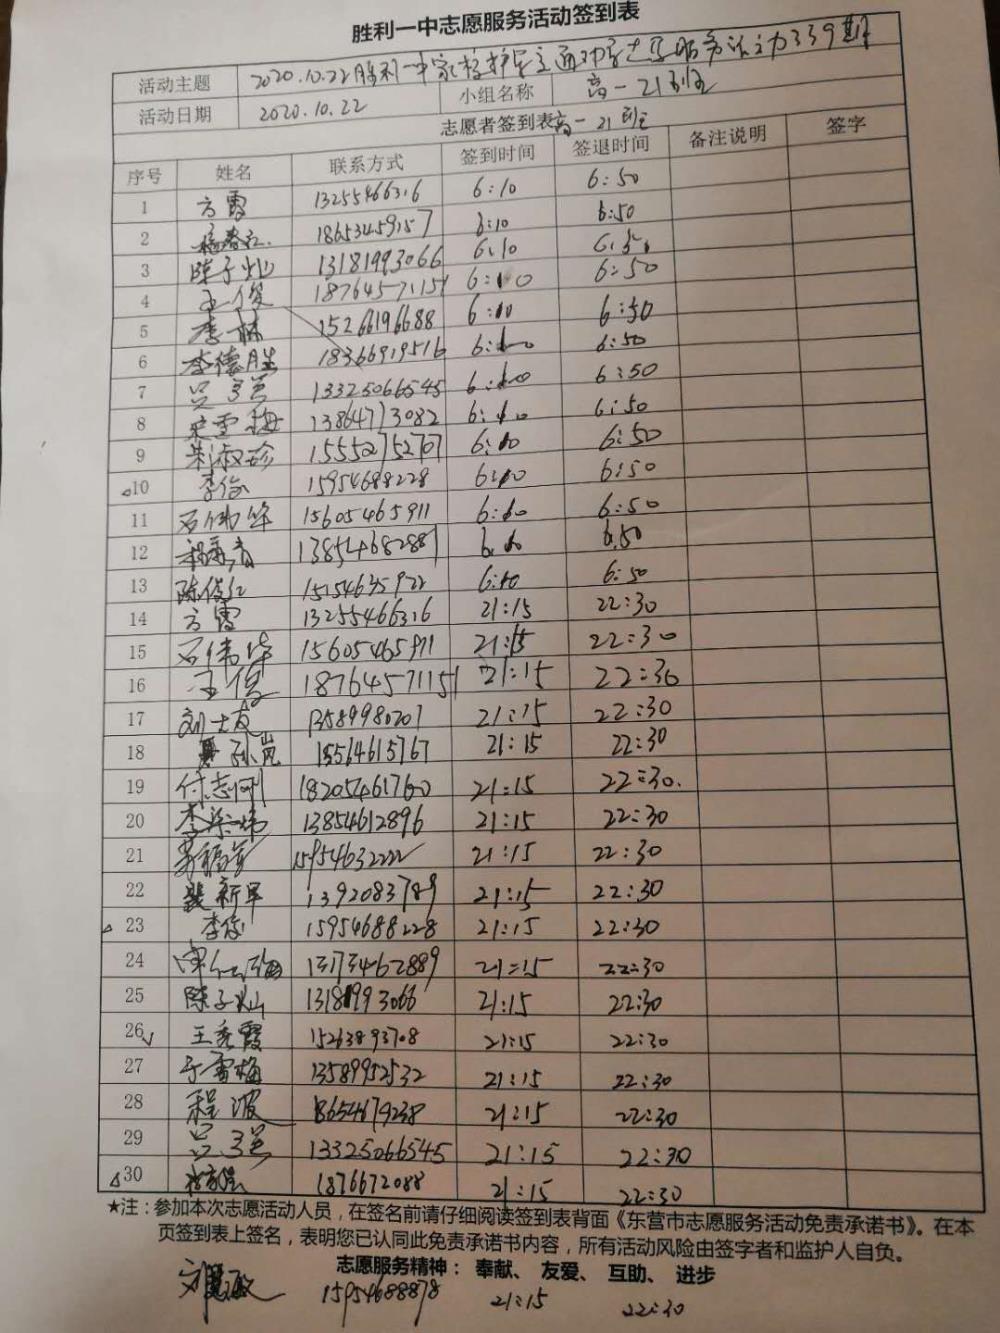 胜利一中志愿服务活动签到表
活动主题 2020.10.22胜利一中家校护学 服务活动339期
活动日期 2020.10.22 小组名称 高一21班
志愿者签到表 高一21班
序号 姓名 联系方式 签到时间 签退时间 备注说明 签字
1 方雷 13255466316 6:10 6:50
2 18653459157 6:10 6:50
3 陈子灿 13181993066 6:10 6:50
4 王俊 18764571151 6:10 6:50
5 李林 15266196688 6:10 6:50
6 李德胜 18366919516 6:10 6:50
7 吕 13325066545 6:10 6:50
8 雪梅 13864713082 6:10 6:50
9 淑珍 15552752707 6:10 6:50
△10 李俊 15954688228 6:10 6:50
11 石伟华 15605465911 6:10 6:50
12 13854682887 6:10 6:50
13 陈俊红 15154635922 6:10 6:50
14 方雷 13255466316 21:15 22:30
15 石伟华 15605465911 21:15 22:30
16 王俊 18764571151 21:15 22:30
17 刘士友 13589980207 21:15 22:30
18 孙岚 15564615767 21:15 22:30
19 付志刚 18205461760 21:15 22:30.
20 李 13854612896 21:15 22:30
21 15954632222 21:15 22:30
22 裴新军 1392083789 21:15 22:30
△23 李俊 15954688228 21:15 22:30
24 21:15 22:30
25 陈子灿 13181993066 21:15 22:30
26√ 王秀霞 15263893708 21:15 22:30
27 于雪梅 13589952532 21:15 22:30
28 程波 18654679238 21:15 22:30
29 吕 13325066545 21:15 22:30
△30 1876672088 21:15 22:30
★注：参加本次志愿活动人员，在签名前请仔细阅读签到表背面《东营市志愿服务活动免责承诺书》。在本
页签到表上签名，表明您已认同此免责承诺书内容，所有活动风险由签字者和监护人自负。
志愿服务精神：奉献、友爱、互助、进步
15954688878 21:15 22:30